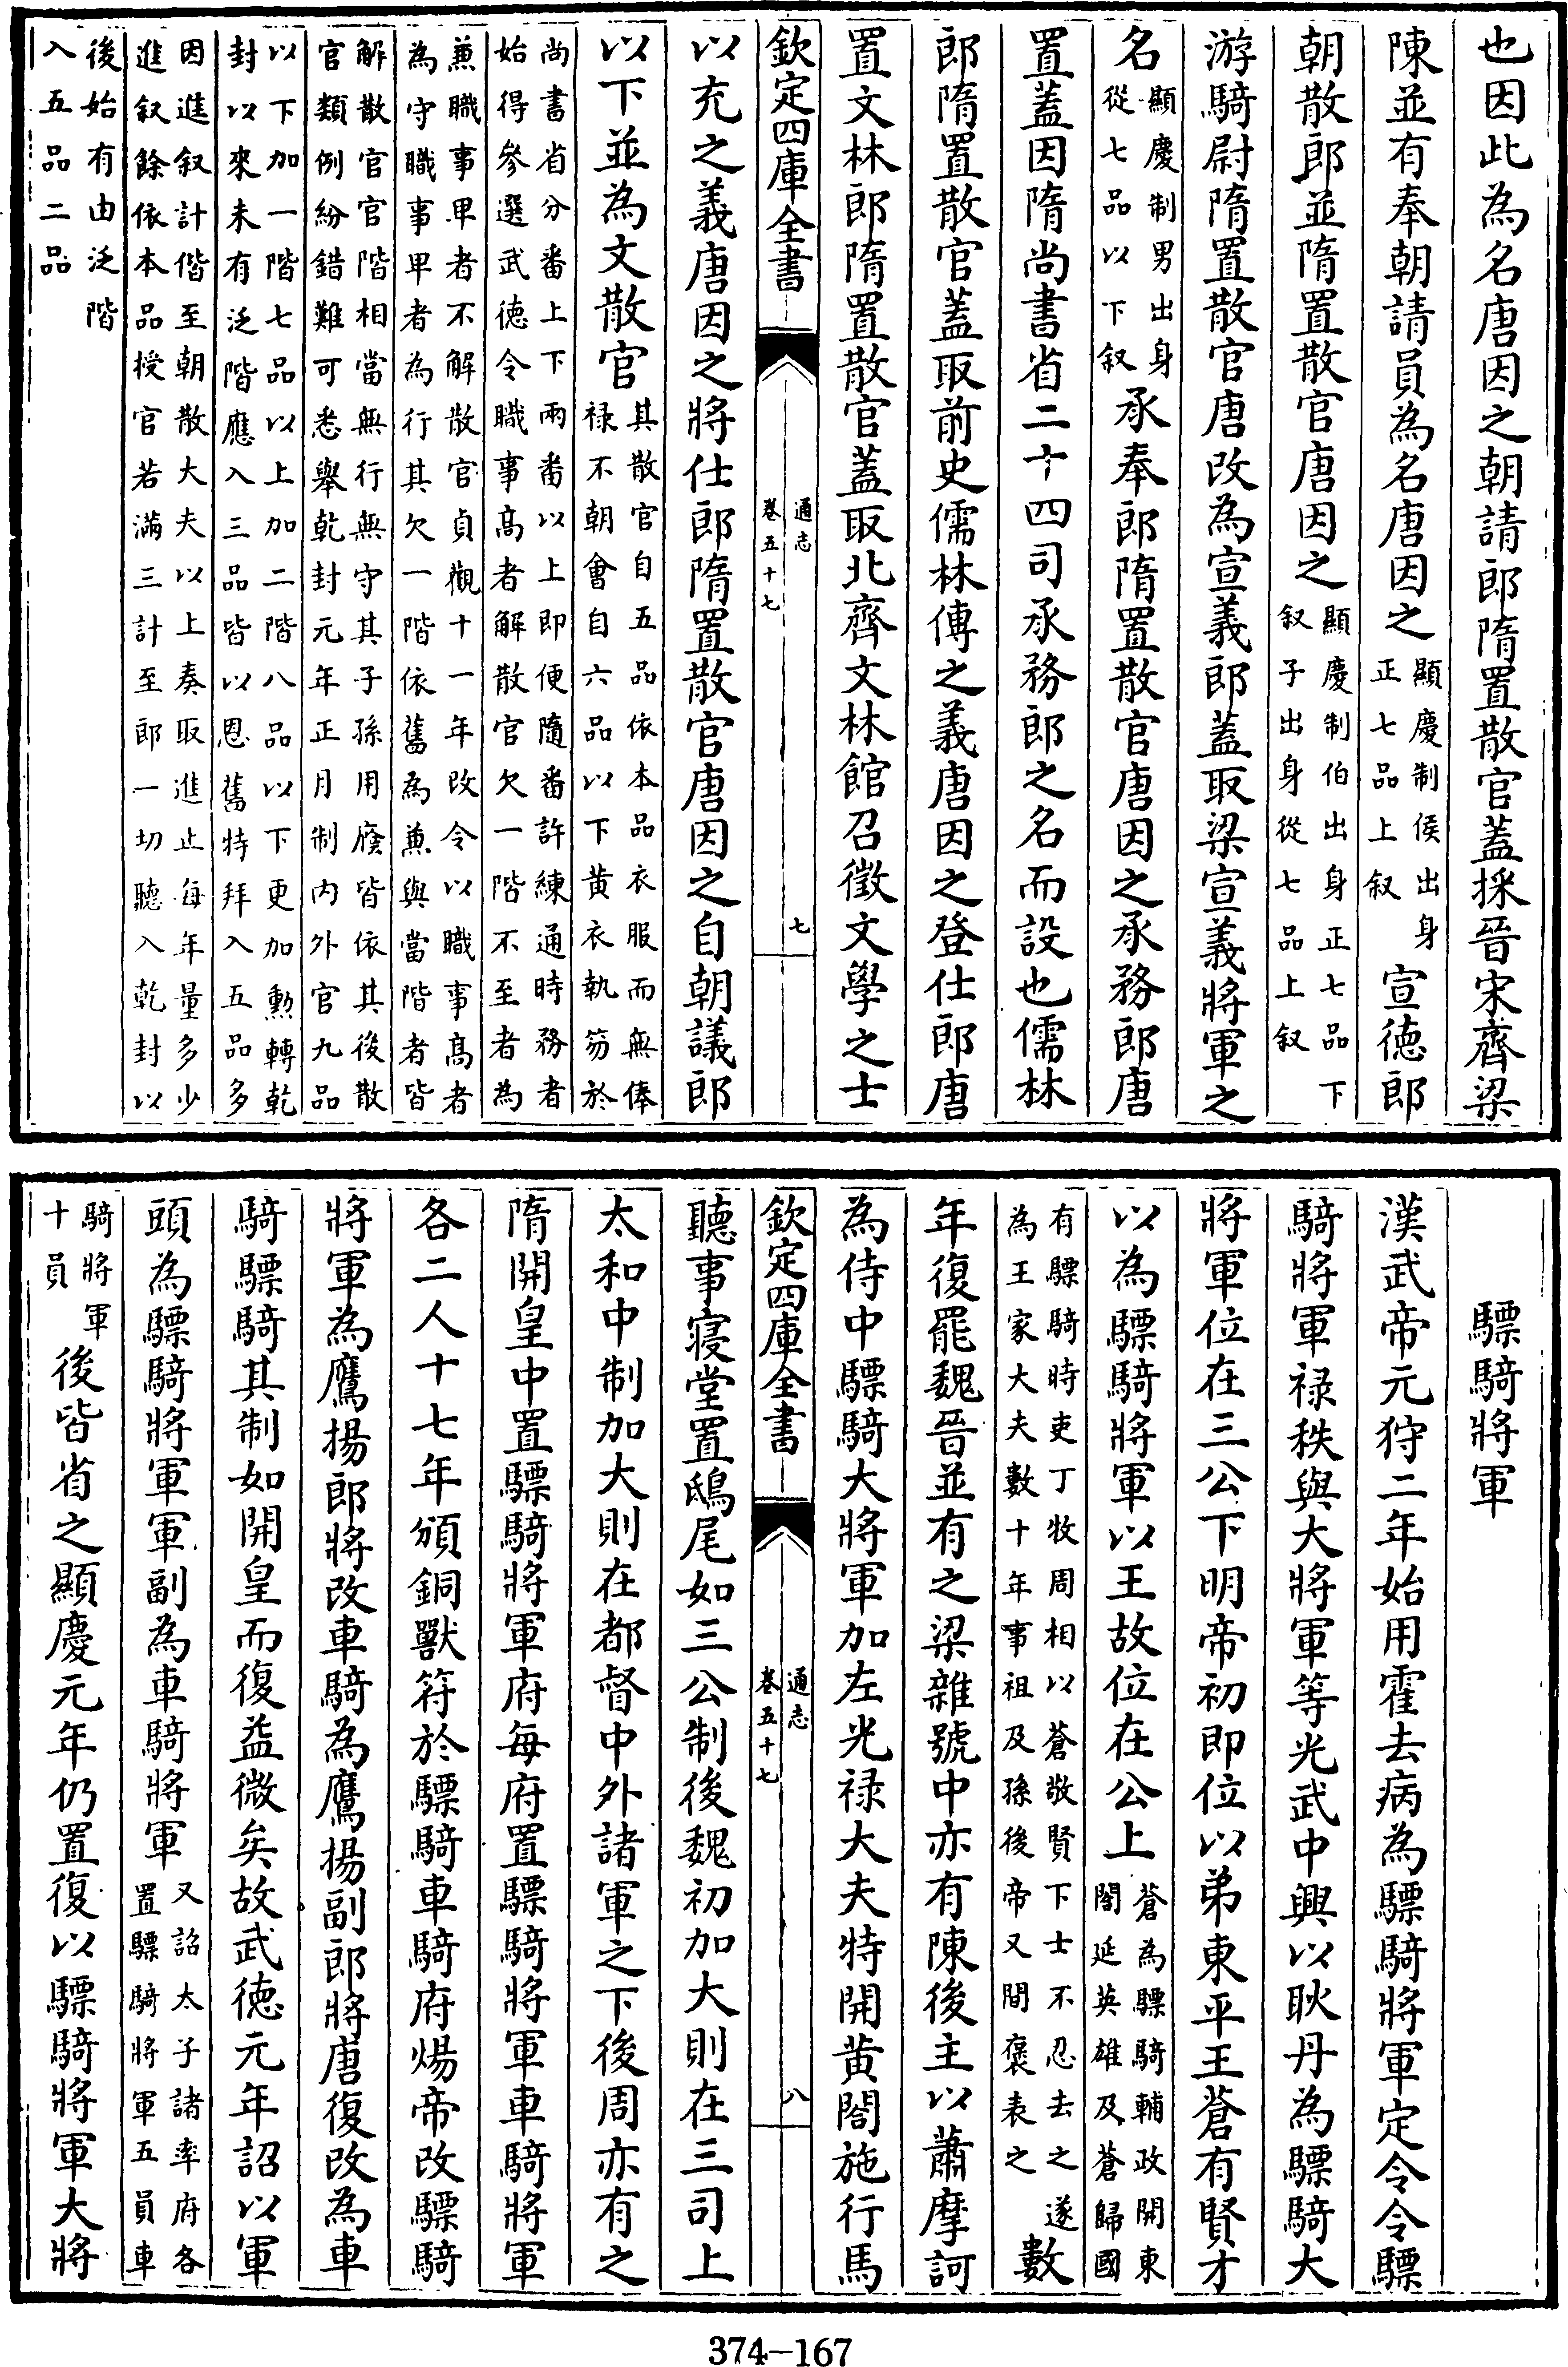 也因此為名唐因之朝請郎隋置散官蓋採晉宋齊梁
陳並有奉朝請員為名唐因之顯慶制侯出身正七品上叙宣德郎
朝散郎並隋置散官唐因之顯慶制伯出身正七品下叙子出身從七品上叙
游騎尉隋置散官唐改為宣義郎蓋取梁宣義將軍之
名顯慶制男出身從七品以下叙承奉郎隋置散官唐因之承務郎唐
置蓋因隋尚書省二十四司承務郎之名而設也儒林
郎隋置散官蓋取前史儒林傳之義唐因之登仕郎唐
置文林郎隋置散官蓋取北齊文林館召徵文學之士
欽定四庫全書
通志
卷五十七
七
以充之義唐因之將仕郎隋置散官唐因之自朝議郎
以下並為文散官其散官自五品依本品衣服而無俸禄不朝會自六品以下黄衣執笏於
尚書省分番上下兩番以上即便隨番許練通時務者始得參選武徳令職事高者解散官欠一階不至者為
兼職事卑者不解散官貞觀十一年改令以職事髙者為守職事卑者為行其欠一階依舊為兼與當階者皆
解散官官階相當無行無守其子孫用廕皆依其後散官類例紛錯難可悉舉乾封元年正月制內外官九品
以下加一階七品以上加二階八品以下更加勲轉乾封以來未有泛階應入三品皆以恩舊特拜入五品多
因進叙計偕至朝散大夫以上奏取進止每年量多少進叙餘依本品授官若滿三計至郎一切聽入乾封以
後始有由泛階入五品二品
驃騎將軍
漢武帝元狩二年始用霍去病為驃騎將軍定令令驃
騎將軍禄秩與大將軍等光武中興以耿丹為驃騎大
將軍位在三公下明帝初即位以弟東平王蒼有賢才
以為驃騎將軍以王故位在公上蒼為驃騎輔政開東閤延英雄及蒼歸國
有驃騎時吏丁牧周相以蒼敬賢下士不忍去之遂為王家大夫數十年事祖及孫後帝又間褒表之數
年復罷魏晉並有之梁雜號中亦有陳後主以蕭摩訶
為侍中驃騎大將軍加左光禄大夫特開黄閤施行馬
欽定四庫全書
通志
卷五十七
八
聽事寢堂置鴟尾如三公制後魏初加大則在三司上
太和中制加大則在都督中外諸軍之下後周亦有之
隋開皇中置驃騎將軍府每府置驃騎將軍車騎將軍
各二人十七年頒銅獸符於驃騎車騎府煬帝改驃騎
將軍為鷹揚郎將改車騎為鷹揚副郎將唐復改為車
騎驃騎其制如開皇而復益微矣故武徳元年詔以軍
頭為驃騎將軍軍副為車騎將軍又詔太子諸率府各置驃騎將軍五員車
騎將軍十員後皆省之顯慶元年仍置復以驃騎將軍大將
374-167